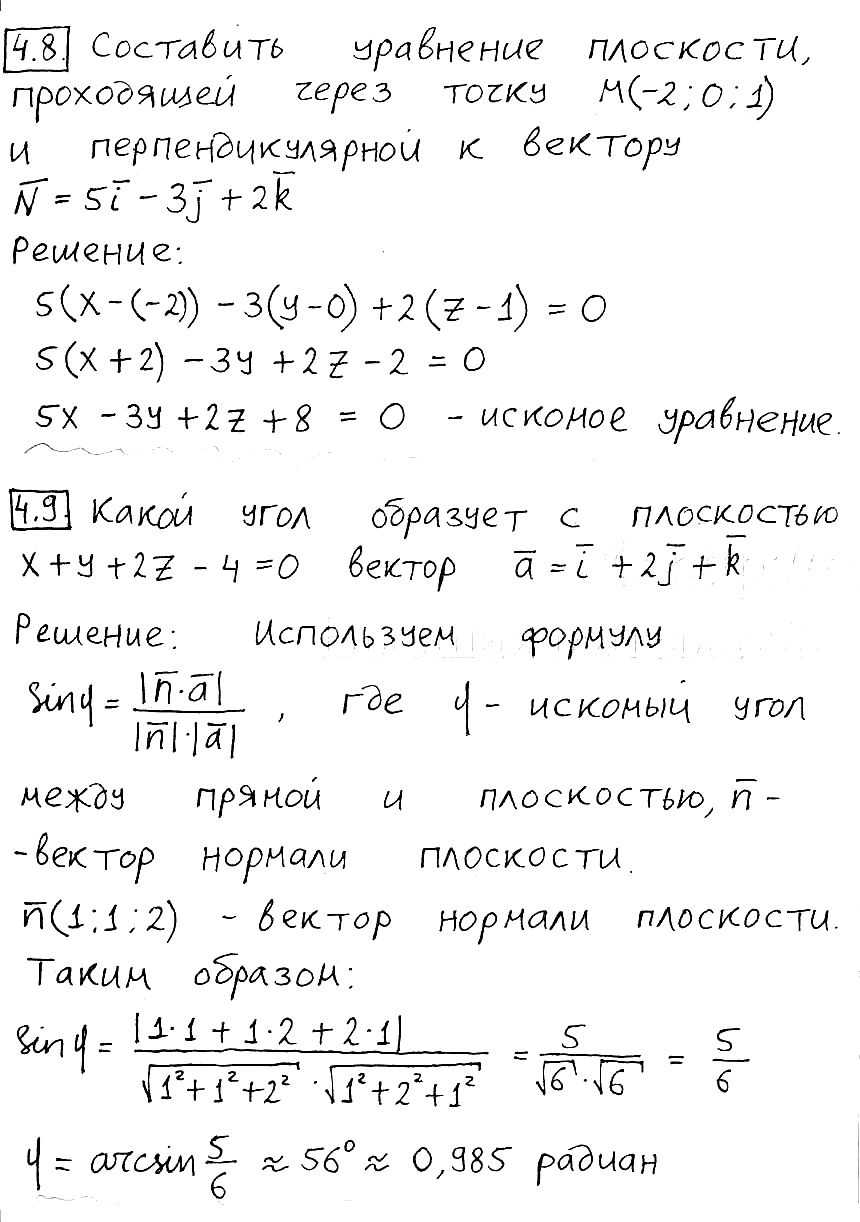 4.8. Составить уравнение плоскости,
проходящей через точку M(-2; 0; 1)
и перпендикулярной к вектору
N̅ = 5i̅ - 3j̅ + 2k̅
Решение:
5(x-(-2)) - 3(y-0) + 2(z-1) = 0
5(x+2) - 3y + 2z - 2 = 0
5x - 3y + 2z + 8 = 0 - искомое уравнение.
4.9. Какой угол образует с плоскостью
x+y+2z-4=0 вектор a̅ = i̅ + 2j̅ + k̅
Решение: Используем формулу
sin φ = |n̅·a̅| / |n̅|·|a̅| , где φ - искомый угол
между прямой и плоскостью, n̅ -
-вектор нормали плоскости.
n̅(1; 1; 2) - вектор нормали плоскости.
Таким образом:
sin φ = |1·1 + 1·2 + 2·1| / √(1²+1²+2²) · √(1²+2²+1²) = 5 / √6·√6 = 5/6
φ = arcsin 5/6 ≈ 56° ≈ 0,985 радиан